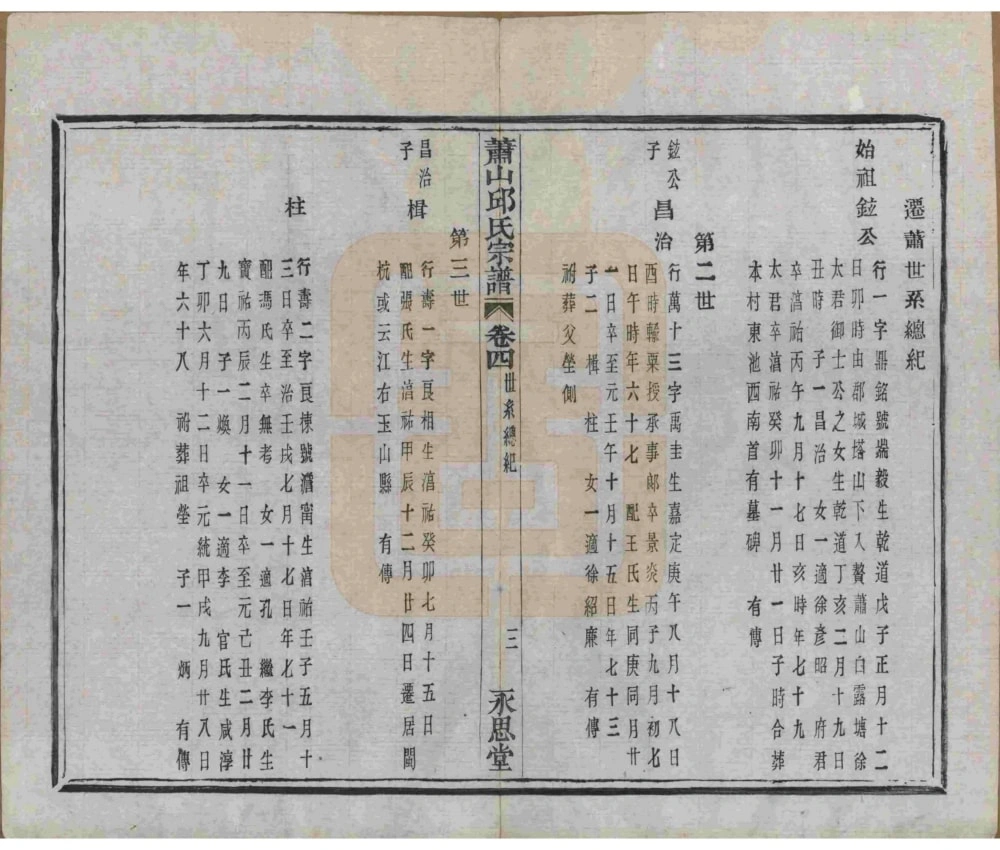 遷蕭世系總紀
始祖鉉公
行一字鼎銘號端毅生乾道戊子正月十二
日卯時由郡城塔山下入贅蕭山白露塘徐
太君御士公之女生乾道丁亥二月十九日
丑時 子一昌治 女一適徐彥昭 府君
卒淳祐丙午九月十七日亥時年七十九
太君卒淳祐癸卯十一月廿一日子時合葬
本村東池西南首有墓碑 有傳
第二世
鉉公子 昌治
行萬十三字禹圭生嘉定庚午八月十八日
酉時輸粟授承事郎卒景炎丙子九月初七
日午時年六十七 配王氏生同庚同月廿
一日卒至元壬午十月十五日年七十三
子二 楫 柱 女一適徐紹廉 有傳
祔葬父塋側
蕭山邱氏宗譜 卷四 世系總紀 三 永思堂
第三世
昌治子 楫
行壽一字良相生淳祐癸卯七月十五日
配張氏生淳祐甲辰十二月廿四日遷居閩
杭或云江右玉山縣 有傳
柱
行壽二字良棟號濟甯生淳祐壬子五月十
三日卒至治壬戌七月十七日年七十一
配馮氏生卒無考 女一適孔 繼李氏生
寶祐丙辰二月十一日卒至元己丑二月廿
九日 子一煥 女一適李 官氏生咸淳
丁卯六月十二日卒元統甲戌九月廿八日
年六十八 祔葬祖塋 子一 炳 有傳